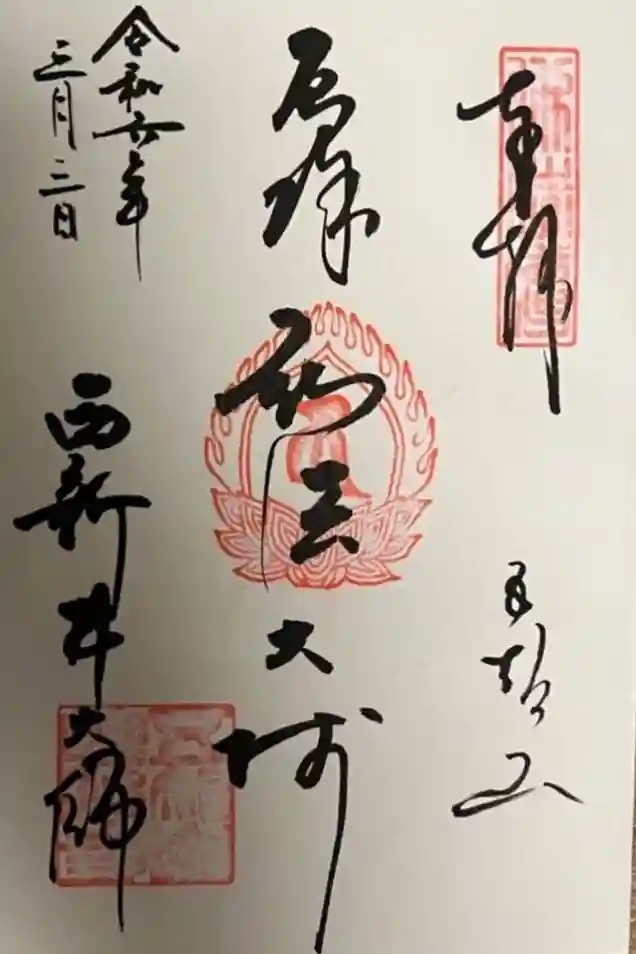 奉拝
五智山
厄除
弘法大師
令和六年
三月三日
西新井大師